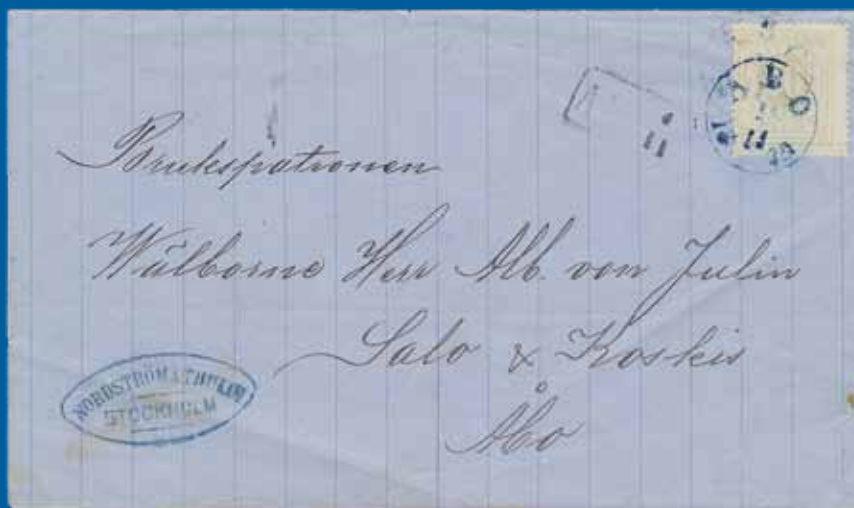 ÅBO
11
11
Brukspatronen
Wälborne Herr Alb. von Julin
Salo & Koskis
Åbo
NORDSTRÖM & THULIN
STOCKHOLM